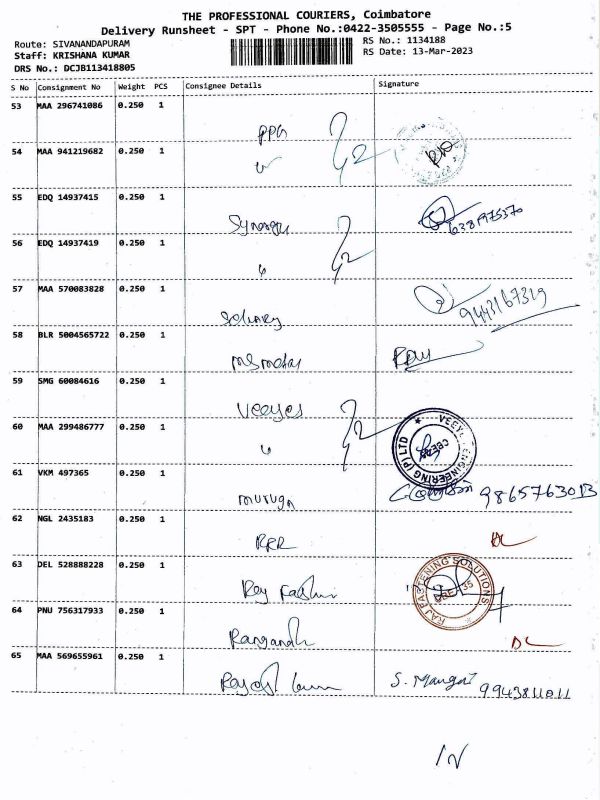 THE PROFESSIONAL COURIERS, Coimbatore
Delivery Runsheet - SPT - Phone No.:0422-3505555 - Page No.:5
Route: SIVANANDAPURAM
RS No.: 1134188
Staff: KRISHANA KUMAR
RS Date: 13-Mar-2023
DRS No.: DCJB113418805
S No Consignment No Weight PCS Consignee Details Signature
53 MAA 296741086 0.250 1
PPG
54 MAA 941219682 0.250 1
55 EDQ 14937415 0.250 1
Synergy
56 EDQ 14937419 0.250 1
57 MAA 570083828 0.250 1
9443167319
58 BLR 5004565722 0.250 1
59 SMG 60084616 0.250 1
Veeyes
60 MAA 299486777 0.250 1
61 VKM 497365 0.250 1
murugn
9865763013
62 NGL 2435183 0.250 1
RRR
DL
63 DEL 528888228 0.250 1
RAJ FASTENING SOLUTIONS
64 PNU 756317933 0.250 1
DL
65 MAA 569655961 0.250 1
S. Mangai 9943811011